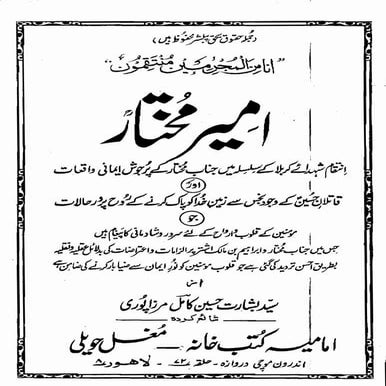 (جملہ حقوق بحق پبلشر محفوظ ہیں)
"انا من المجرمین منتقمون"
امیر مختار
انتقام شہدائے کربلا کے سلسلہ میں جناب مختار کے پُرجوش ایمانی واقعات
اور
قاتلانِ حسینؑ کے وجودِ نجس سے زمینِ خدا کو پاک کرنے کے روح پرور حالات
جو
مومنین کے قلوب و ارواح کے لئے سرور و شادمانی کا پیغام ہیں
جس میں جناب مختار و ابراہیم بن مالک اشتر پر الزامات و اعتراضات کی بدلائل عقلیہ و نقلیہ
بطریق احسن تردید کی گئی ہے جو قلوب مومنین کو نورِ ایمان سے ضیا بار کرنے کی ضامن ہے
از
سید بشارت حسین کامل مرزا پوری
شائع کردہ
امامیہ کتب خانہ — مغل حویلی
اندرون موچی دروازہ - حلقہ ۷۲ - لاہور